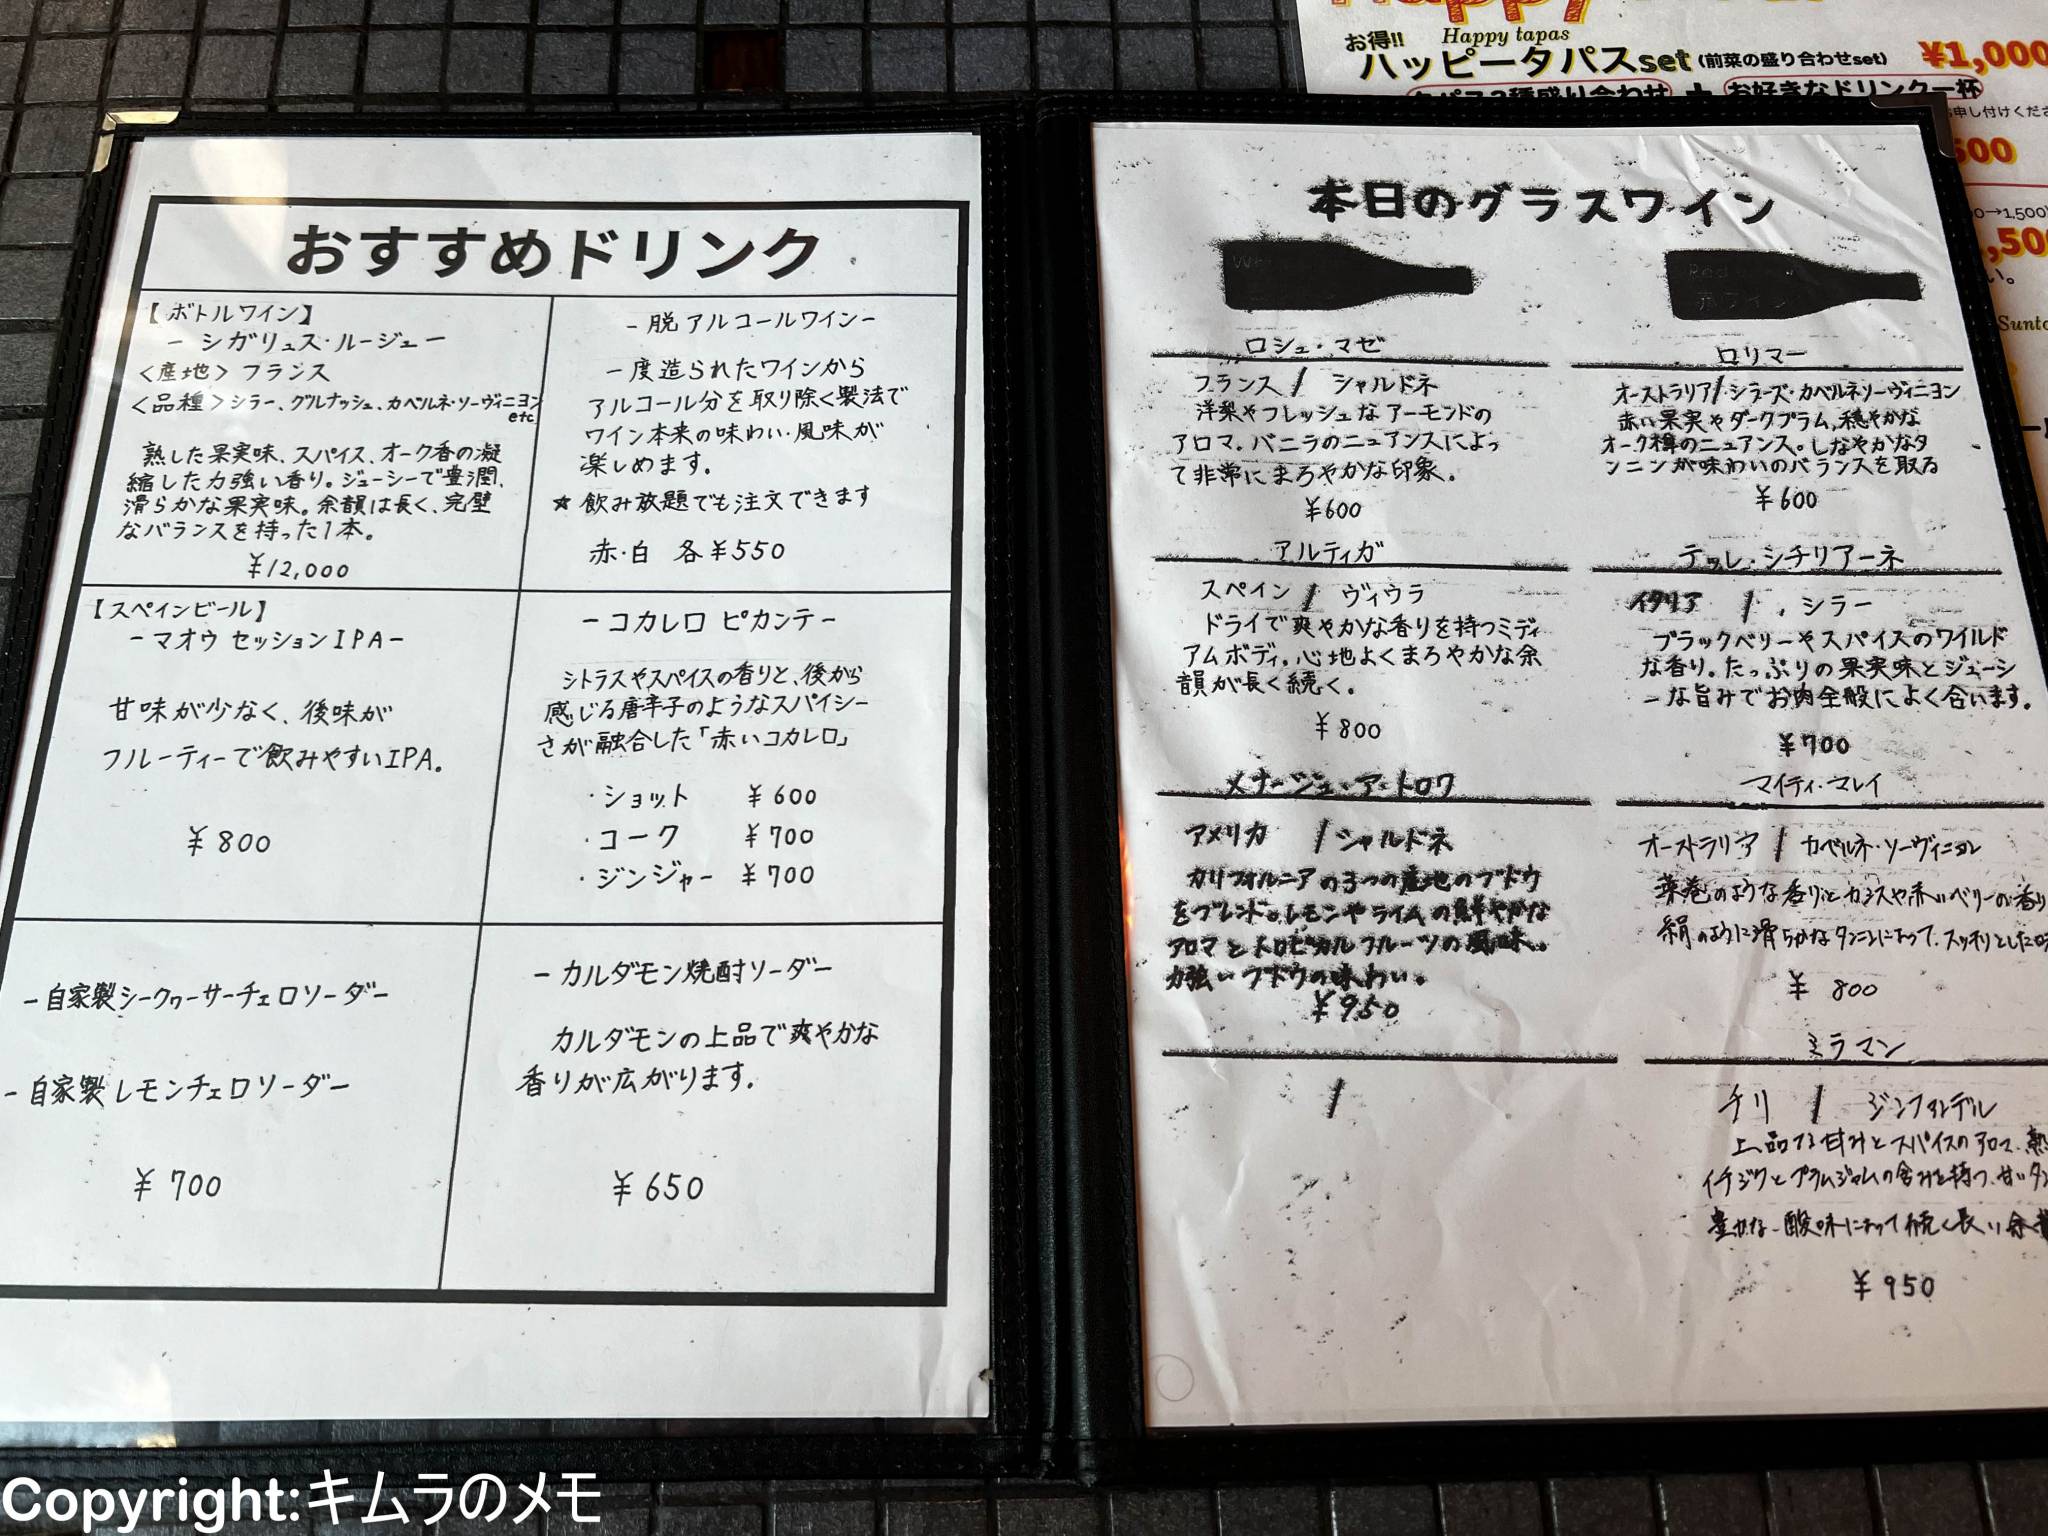 Happy tapas
お得!!
ハッピータパスset (前菜の盛り合わせset) ¥1,000
お好きなドリンク一杯
おすすめドリンク
【ボトルワイン】
- シガリュス・ルージュー
<産地> フランス
<品種> シラー、グルナッシュ、カベルネ・ソーヴィニヨン
etc
熟した果実味、スパイス、オーク香の凝
縮した力強い香り。ジューシーで豊潤、
滑らかな果実味。余韻は長く、完璧
なバランスを持った1本。
¥12,000
- 脱アルコールワイン -
一度造られたワインから
アルコール分を取り除く製法で
ワイン本来の味わい・風味が
楽しめます。
★飲み放題でも注文できます
赤・白 各¥550
【スペインビール】
- マオウ セッションIPA -
甘味が少なく、後味が
フルーティーで飲みやすいIPA。
¥800
- コカレロ ピカンテ -
シトラスやスパイスの香りと、後から
感じる唐辛子のようなスパイシー
さが融合した「赤いコカレロ」
・ショット ¥600
・コーク ¥700
・ジンジャー ¥700
- 自家製シークヮーサーチェロソーダー
- 自家製レモンチェロソーダー
¥700
- カルダモン焼酎ソーダー
カルダモンの上品で爽やかな
香りが広がります.
¥650
本日のグラスワイン
ロシュ・マゼ
フランス / シャルドネ
洋梨やフレッシュなアーモンドの
アロマ。バニラのニュアンスによっ
て非常にまろやかな印象。
¥600
アルティガ
スペイン / ヴィウラ
ドライで爽やかな香りを持つミディ
アムボディ。心地よくまろやかな余
韻が長く続く。
¥800
メナージュ・ア・トロワ
アメリカ / シャルドネ
カリフォルニアの3つの産地のブドウ
をブレンド。レモンやライムの鮮やかな
アロマとトロピカルフルーツの風味。
力強いブドウの味わい。
¥950
/
Red
赤ワイン
ロリマー
オーストラリア / シラーズ・カベルネソーヴィニヨン
赤い果実やダークプラム、穏やかな
オーク樽のニュアンス。しなやかなタ
ンニンが味わいのバランスを取る
¥600
テッレ・シチリアーネ
イタリア / シラー
ブラックベリーやスパイスのワイルド
な香り。たっぷりの果実味とジューシ
ーな旨みでお肉全般によく合います。
¥700
マイティ・マレイ
オーストラリア / カベルネ・ソーヴィニヨン
葉巻のような香りとカシスや赤いベリーの香り
絹のように滑らかなタンニンによって、スッキリとした口
¥800
ミラマン
チリ / ジンファンデル
上品な甘みとスパイスのアロマ、熟
イチジクとプラムジャムの含みを持つ、甘いタン
豊かな酸味によって続く長い余韻
¥950
Copyright:キムラのメモ